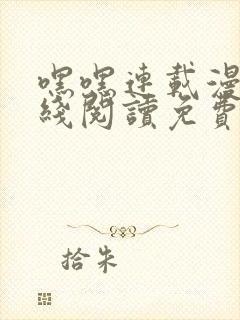 嘿嘿連載漫
綫閱讀免費
拾朱